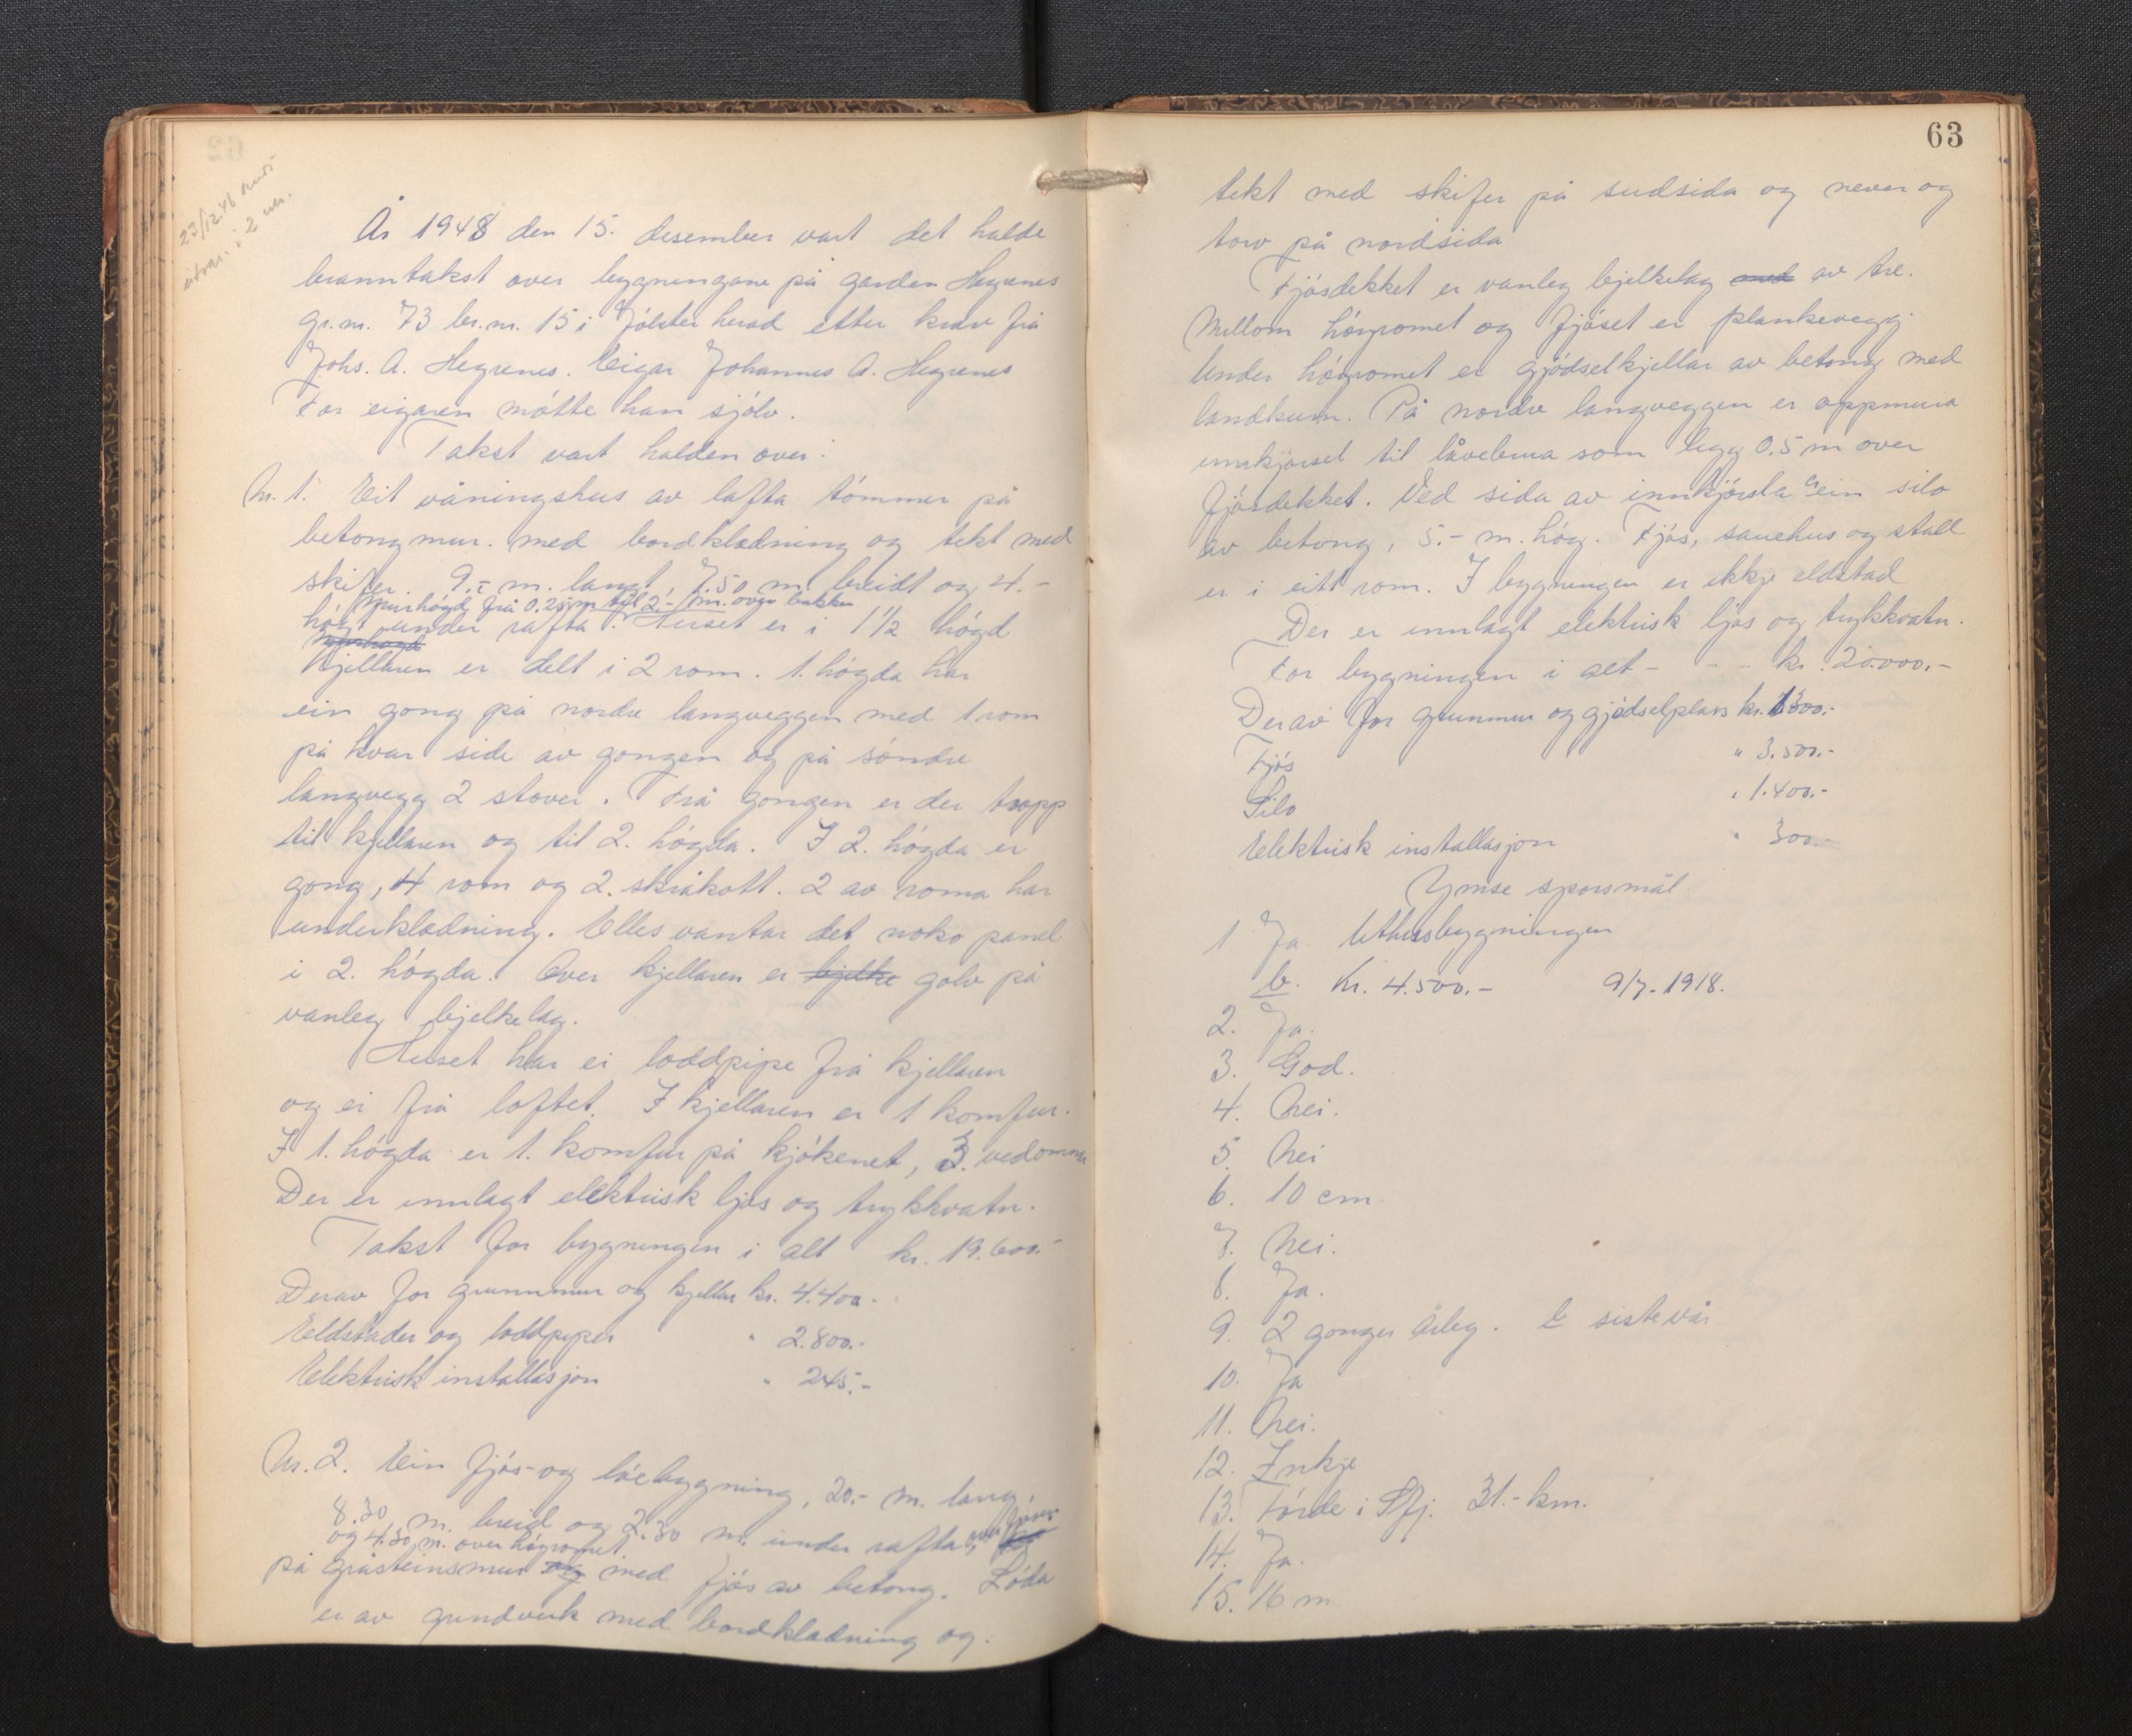 År 1948 den 15. desember vart det halde
branntakst over bygningane på garden Hegrenes
gr.nr. 73 br.nr. 15 i Jölster herad etter krav frå
Johs. A. Hegrenes. Eigar Johannes A. Hegrenes
For eigaren mötte han sjölv.
Takst vart halden over:
Nr. 1. Eit våningshus av lafta tömmer på
betongmur. med bordklædning og tekt med
skifer. 9.- m. langt, 7.50 m. breidt og 4.-
murhögd frå 0.25 m til 2.- m. over bakken
högt under rafta. Huset er i 1 1/2 högd
Kjellaren er delt i 2 rom. 1. högda har
ein gong på nordre langveggen med 1 rom
på kvar side av gongen og på söndre
langvegg 2 stover. Frå gongen er der tropp
til kjellaren og til 2. högda. I 2. högda er
gong, 4 rom og 2. skråkott. 2 av roma har
underklædning. Elles vantar det noko panel
i 2. högda. Over kjellaren er bjelke golv på
vanleg bjelkelag.
Huset har ei loddpipe frå kjellaren
og ei frå loftet. I kjellaren er 1 komfur.
I 1. högda er 1. komfur på kjökenet, 3. vedomnar
Der er innlagt elektrisk ljos og trykkvatn.
Takst for bygningen i alt kr. 19.600.-
Derav for grunnmur og kjellar kr. 4.400.-
Eldstader og loddpiper " 2.800.-
Elektrisk installasjon " 245.-
Nr. 2. Ein fjös- og löebygning, 20.- m. lang,
8.30 m. breid og 2.30 m. under rafta, over fjöset
og 4.30 m. over höyromet
på gråsteinsmur og med fjös av betong. Löda
er av grindverk med bordklædning og
63
tekt med skifer på sudsida og never og
torv på nordsida
Fjösdekket er vanleg bjelkelag med av tre.
Millom höyromet og fjöset er plankevegg.
Under höyromet er gjödselkjellar av betong med
landkum. På nordre langveggen er oppmura
innkjörsel til låvebrua som ligg 0.5 m over
fjösdekket. Ved sida av innkjörsla er ein silo
av betong, 5.- m. hög. Fjös, sauehus og stall
er i eitt rom. I bygningen er ikkje eldstad
Der er innlagt elektrisk ljos og trykkvatn.
For bygningen i alt - - - kr. 20.000.-
Derav for grunnmur og gjödselplass kr. 1300.-
Fjös " 3.500.-
Silo " 1.400.-
Elektrisk installasjon " 300.-
Ymse sporsmål
1 Ja. Uthusbygningen
b. Kr. 4.500.- 9/7-1918.
2. Ja.
3. God.
4. Nei.
5. Nei
6. 10 cm
7. Nei.
8. Ja.
9. 2 gonger årleg. b siste vår
10. Ja
11. Nei.
12. Inkje
13. Förde i Sfj. 31.- km.
14. Ja.
15. 16 m